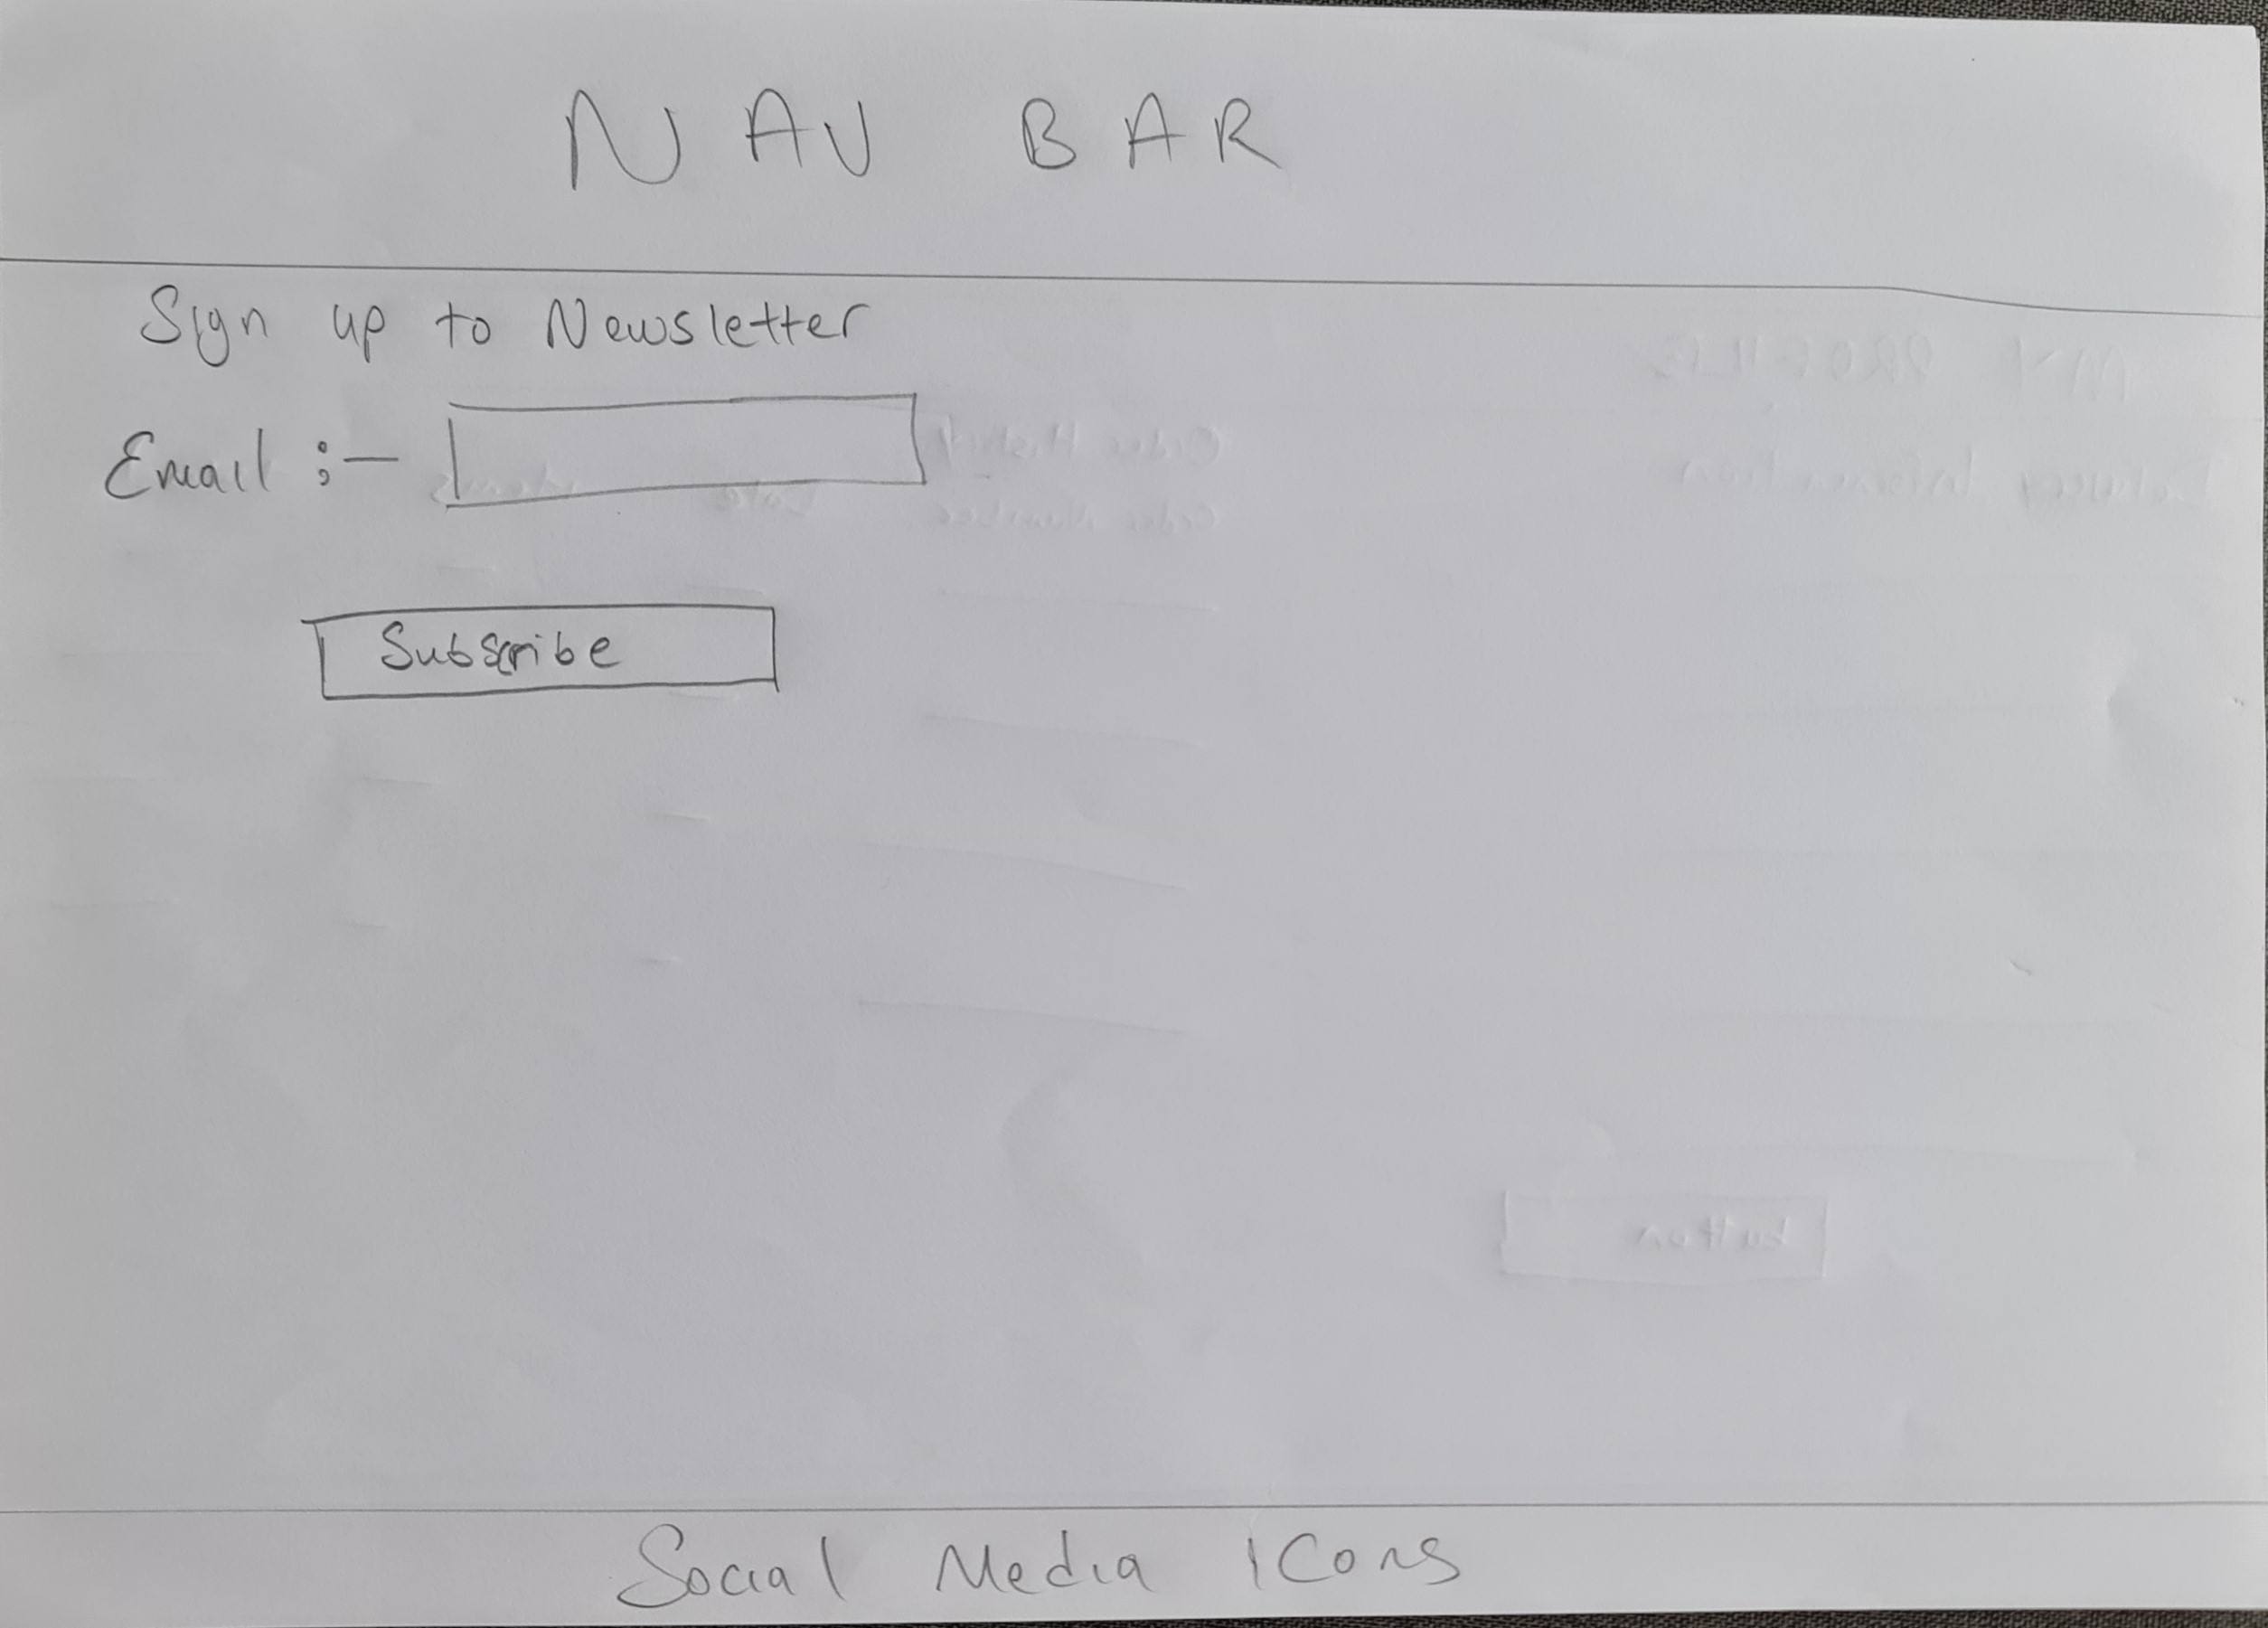 NAV BAR
Sign up to Newsletter
Email :-
Subscribe
Social Media icons